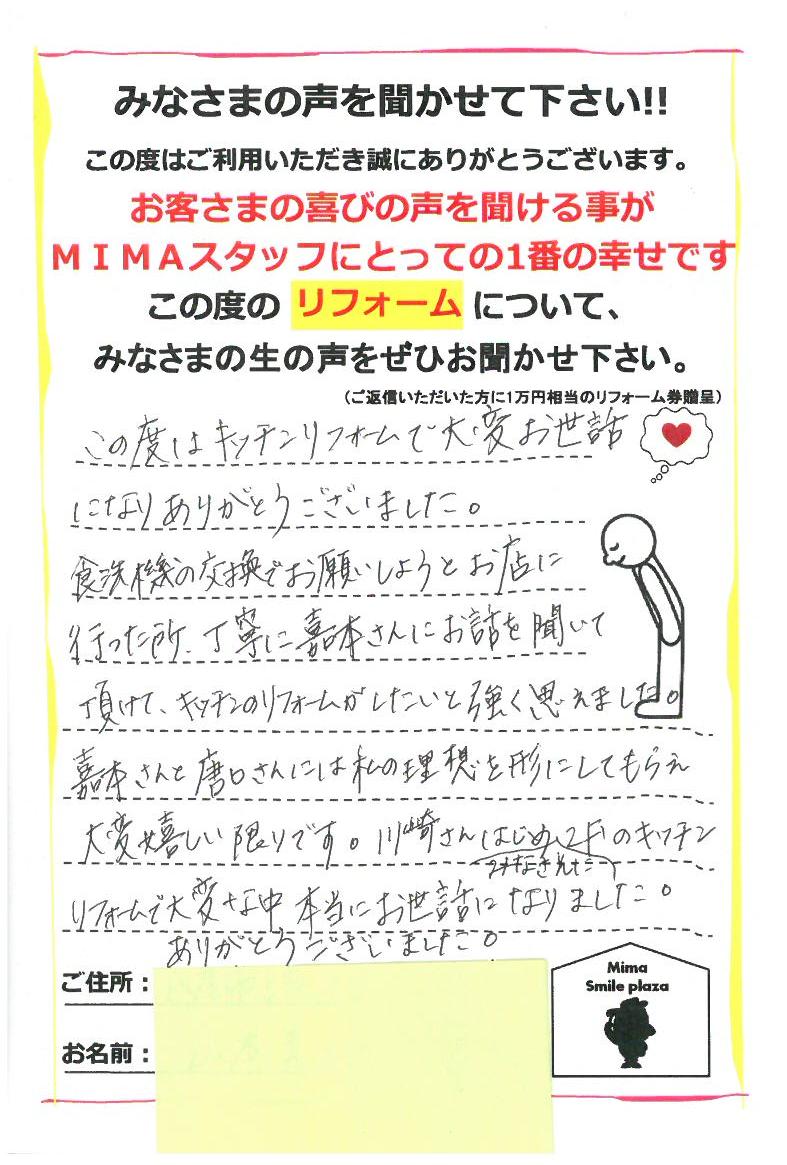 みなさまの声を聞かせて下さい!!
この度はご利用いただき誠にありがとうございます。
お客さまの喜びの声を聞ける事が
ＭＩＭＡスタッフにとっての1番の幸せです
この度の リフォーム について、
みなさまの生の声をぜひお聞かせ下さい。
（ご返信いただいた方に1万円相当のリフォーム券贈呈）
この度はキッチンリフォームで大変お世話
になりありがとうございました。
食洗機の交換でお願いしようとお店に
行った所、丁寧に嘉本さんにお話を聞いて
頂けて、キッチンのリフォームがしたいと強く思えました。
嘉本さんと唐口さんには私の理想を形にしてもらえ
大変嬉しい限りです。川崎さんはじめ 2Fのキッチン
みなさんに
リフォームで大変な中本当にお世話になりました。
ありがとうございました。
ご住所：
お名前：
Mima
Smile plaza